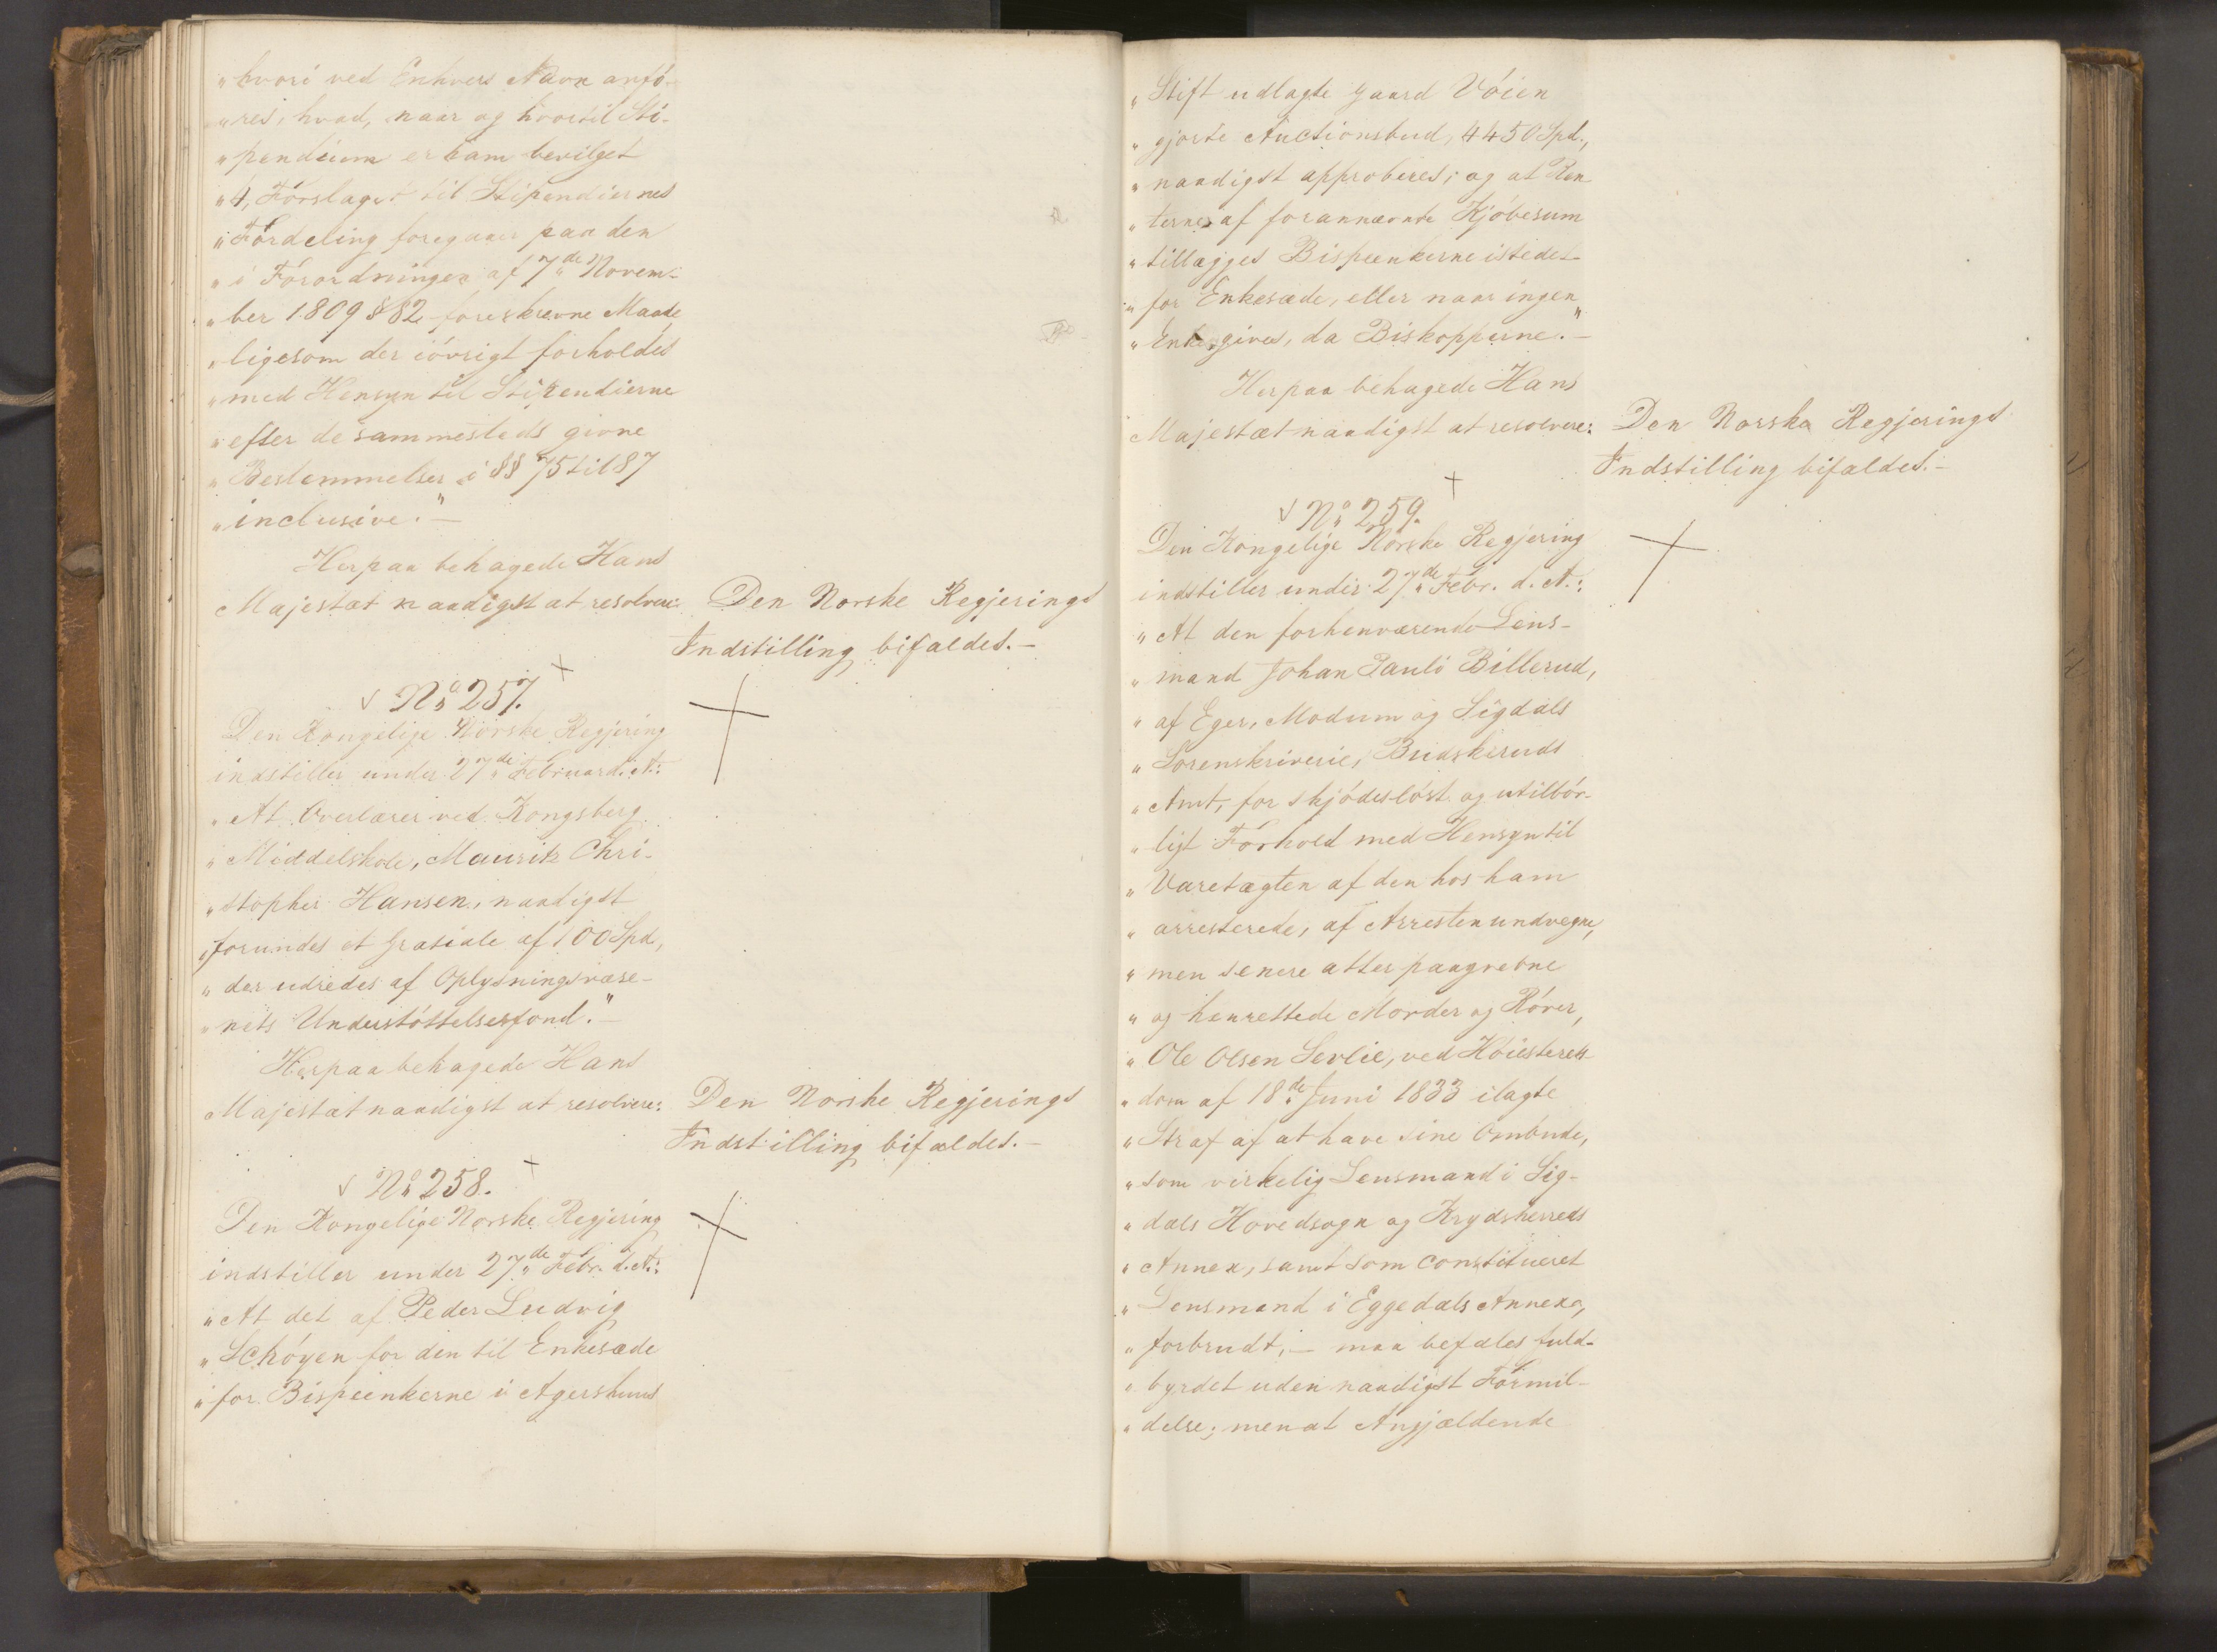 "hvori ved Enhvers Navn anfö-
"res, hvad, naar og hvortil Sti-
"pendium er ham bevilget
"4, Forslaget til Stipendiernes
"Fordeling foregaaer paa den
"i Forordningen af 7de Novem-
"ber 1809 § 82 foreskrevne Maade
"ligesom der iövrigt forholdes
"med Hensyn til Stipendierne
"efter de sammesteds givne
"Bestemmelser i §§ 75 til 87
"inclusive."-
Herpaa behagede Hans
Majestæt naadigst at resolvere: Den Norske Regjerings
Indstilling bifaldes.-
No 257.
Den Kongelige Norske Regjering
indstiller under 27de Februar d. A.:
"At Overlærer ved Kongsberg
"Middelskole, Mauritz Chri-
"stopher Hansen, naadigst
"forundes et Gratiale af 100 Spd,
"der udredes af Oplysningsvæse-
"nets Understöttelsesfond."-
Herpaa behagede Hans
Majestæt naadigst at resolvere: Den Norske Regjerings
Indstilling bifaldes.-
No 258.
Den Kongelige Norske Regjering
indstiller under 27de Febr. d. A.:
"At det af Peder Ludvig
"Schöyen for den til Enkesæde
"for Bispeenkerne i Agershuus
"Stift udlagte Gaard Vöien
"gjorte Auctionsbud, 4450 Spd.,
"naadigst approberes; og at Ren
"terne af forannævnte Kjöbesum
"tillægges Bispeenkerne istedet-
"for Enkesæde, eller naar ingen
"Enke gives, da Biskopperne."-
Herpaa behagede Hans
Majestæt naadigst at resolvere: Den Norske Regjerings
Indstilling bifaldes.-
No 259.
Den Kongelige Norske Regjering
indstiller under 27de Febr. d. A.:
"At den forhenværende Lens-
"mand Johan Pauli Billerud,
"af Eger, Modum og Sigdals
"Sorenskriverie, Budskeruds
"Amt, for skjödeslöst og utilbör-
"ligt Forhold med Hensyn til
"Varetægten af den hos ham
"arresterede, af Arresten undvegne,
"men senere atter paagrebne
"og henrettede Morder og Röver,
"Ole Olsen Sevlie, ved Höiesterets
"dom af 18de Juni 1833 ilagte
"Straf af at have sine Ombude,
"som virkelig Lensmand i Sig-
"dals Hovedsogn og Krydsherreds
"Annex, samt som constitueret
"Lensmand i Eggedals Annexe,
"forbrudt,- maa befales fuld-
"byrdet uden naadigst Formil-
"delse; men at Angjældende